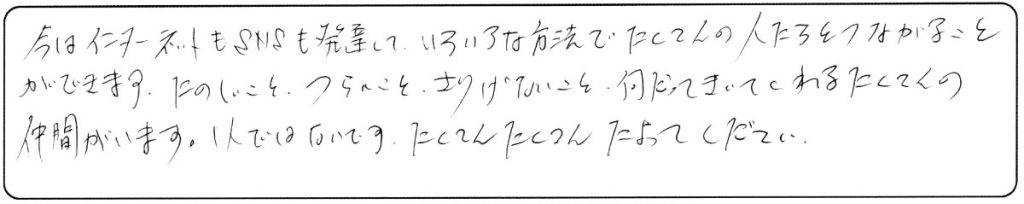 今はインターネットもSNSも発達して、いろいろな方法でたくさんの人たちとつながること
ができます。たのしいこと、つらいこと、さりげないこと、何だってきいてくれるたくさんの
仲間がいます。1人ではないです。たくさんたくさんたよってください。